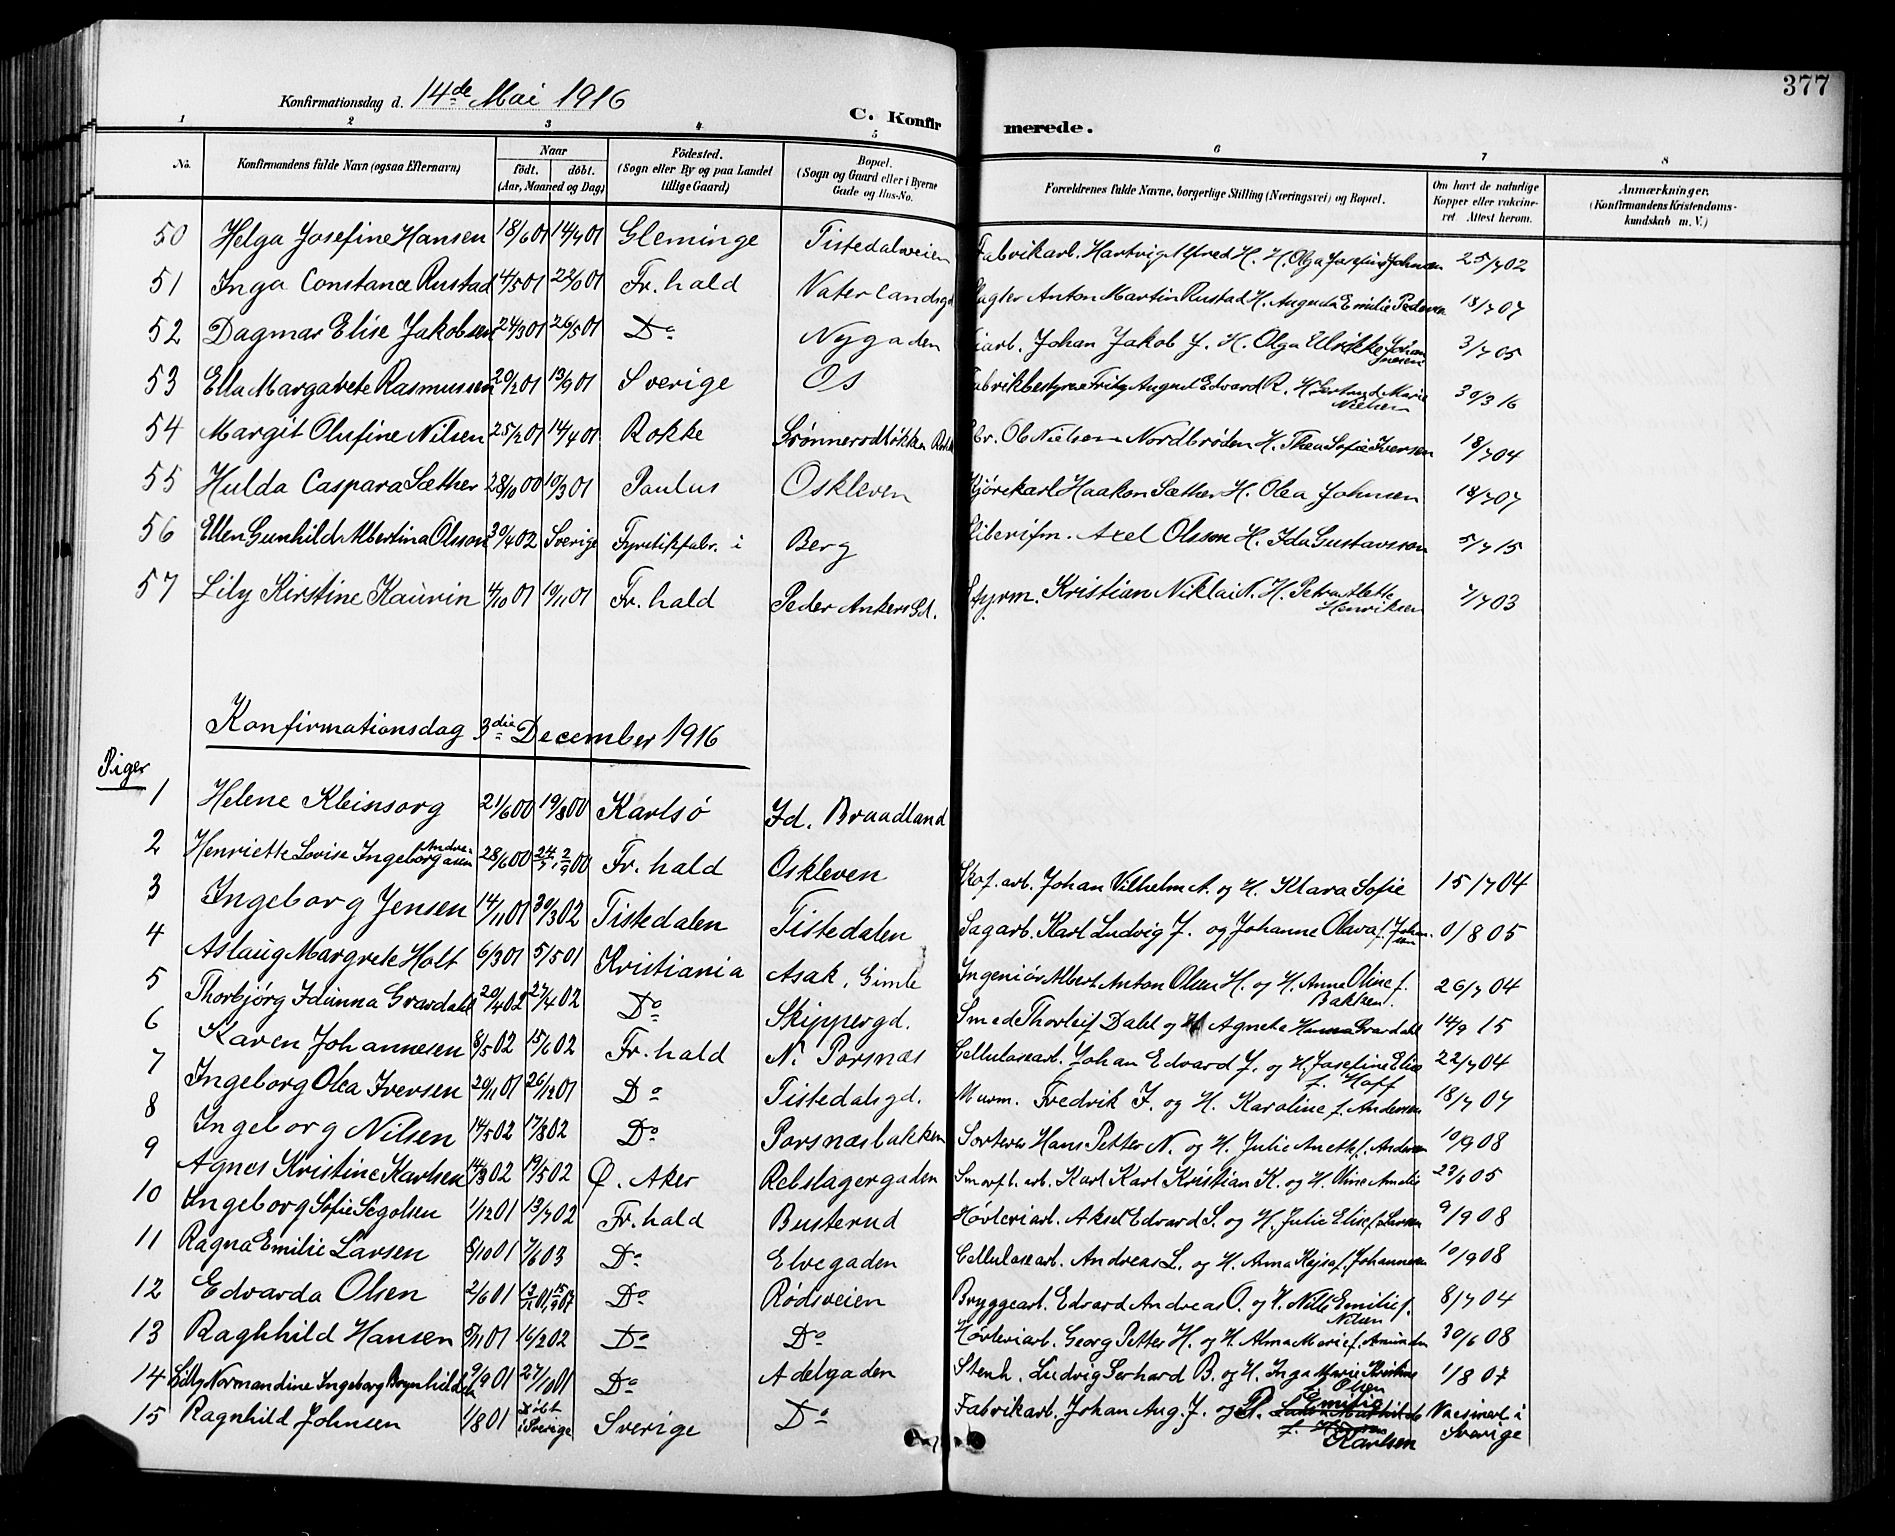 377
Konfirmationsdag d. 14de Mai 1916
C. Konfirmerede.
1 2 3 4 5 6 7 8
No. Konfirmandens fulde Navn (ogsaa Efternavn) Naar født. døbt. (Aar, Maaned og Dag) Fødested. (Sogn eller By og paa Landet tillige Gaard) Bopæl. (Sogn og Gaard eller i Byerne Gade og Hus-No. Forældrenes fulde Navne, borgerlige Stilling (Næringsvei) og Bopæl. Om havt de naturlige Kopper eller vakcineret. Attest herom. Anmærkninger. (Konfirmandens Kristendomskundskab m. V.)
50 Helga Josefine Hansen 18/6 01 14/7 01 Gleminge Tistedalsveien Fabrikarb. Hartvig Alfred H. H. Olga Josefine Johnsen 25/7 02
51 Inga Constance Rustad 4/5 01 Fr.hald Vaterlandsgd Slagter Anton Martin Rustad H. Augusta Emilie Pedersen 18/7 07
52 Dagmar Elise Jakobsen 24/3 01 26/5 01 Do Nygaden Johan Jakob J. H. Olga Ulrikke Johannesen 3/7 05
53 Ella Margarete Rasmussen 20/2 01 13/9 01 Sverige Os Fabrikbestyrer Fritz August Edvard R. H. Gertrud Marie Nielsen 30/3 16
54 Margit Olufine Nilsen 25/2 01 14/4 01 Rokke Grønnerødløkken Rokke Ole Nielsen Nordbrøden H. Thea Sofie Iversen 18/7 04
55 Hulda Caspara Sæther 28/10 00 10/3 01 Paulus Oskleven Kjørekarl Haakon Sæther H. Olea Johnsen 18/7 07
56 Ellen Gunhild Albertina Olsson 30/4 02 Sverige Fyrstikfabr. i Berg Sliberifm. Axel Olsson H. Ida Gustavsson 5/7 15
57 Lily Kirstine Kaurin 4/10 01 10/11 01 Fr.hald Peder Ankers Pl. Styrm. Kristian Niklai N. H. Petra Alette Henriksen 7/7 03
Konfirmationsdag 3die December 1916
Piger
1 Helene Kleinsorg 21/6 00 19/8 00 Karlsø Id. Braadland
2 Henriette Lovise Ingeborg Andreasen 28/6 00 24/7, 2/9 00 Fr.hald Oskleven Skof. arb. Johan Vilhelm A. og H. Klara Sofie 15/7 04
3 Ingeborg Jensen 14/11 01 30/3 02 Tistedalen Tistedalen Sagarb. Karl Ludvig J. og Johanne Olava f. Johansen 0/8 05
4 Aslaug Margrete Holt 6/3 01 5/5 01 Kristiania Asak, Gimle Ingeniør Albert Anton Olsen H. og H. Anne Oline f. Bakken 26/7 04
5 Thorbjørg Idunna Grardahl 20/4 02 27/4 02 Do Skippergd. Smed Thorleif Dahl og H Agnete Hanna Grardahl 14/9 15
6 Karen Johannesen 8/5 02 15/6 02 Fr.hald N. Porsnæs Cellulosearb. Johan Edvard J. og H. Josefine Elise f. Hoff 22/7 04
7 Ingeborg Olea Iversen 20/11 01 26/12 01 Do Tistedalsgd. Murm. Fredrik I. og H. Karoline f. Andersen 18/7 07
8 Ingeborg Nilsen 14/5 02 17/8 02 Do Porsnæsbakken Sorterer Hans Petter N. og H. Julie Anethe f. Andersen 10/9 08
9 Agnes Kristine Karlsen 14/3 02 19/5 02 Ø. Aker Rebslagergaden Smørf. arb. Karl Karl Kristian K. og H. Oline Amalie 23/6 05
10 Ingeborg Sofie Segolsen 1/12 01 13/7 02 Fr.hald Busterud Høvleriarb. Aksel Edvard S. og H. Julie Elise f. Larsen 9/9 08
11 Ragna Emilie Larsen 8/10 01 7/6 03 Do Elvegaden Cellulosearb. Andreas L. og H. Anna Kajsa f. Johannesen 10/9 08
12 Edvarda Olsen 2/6 01 Do Rødsveien Bryggearb. Edvard Andreas O. og H. Nille Emilie f. Nilsen 8/7 04
13 Raghhild Hansen 5/11 01 16/2 02 Do Do Høvleriarb. Georg Petter H. og H. Alma Marie f. Amundsen 30/6 08
14 Lilly Normandine Ingeborg Brynhildsen 9/9 01 27/10 01 Do Adelgaden Stenh. Ludvig Gerhard B. og H. Inga Marie Kristine f. Olsen 1/8 07
15 Ragnhild Johnsen 1/8 01 Døbt i Sverige Sverige Do Fabrikarb. Johan Aug. J. og H. Emilie f. Karlsen Vacsinert i Sverige